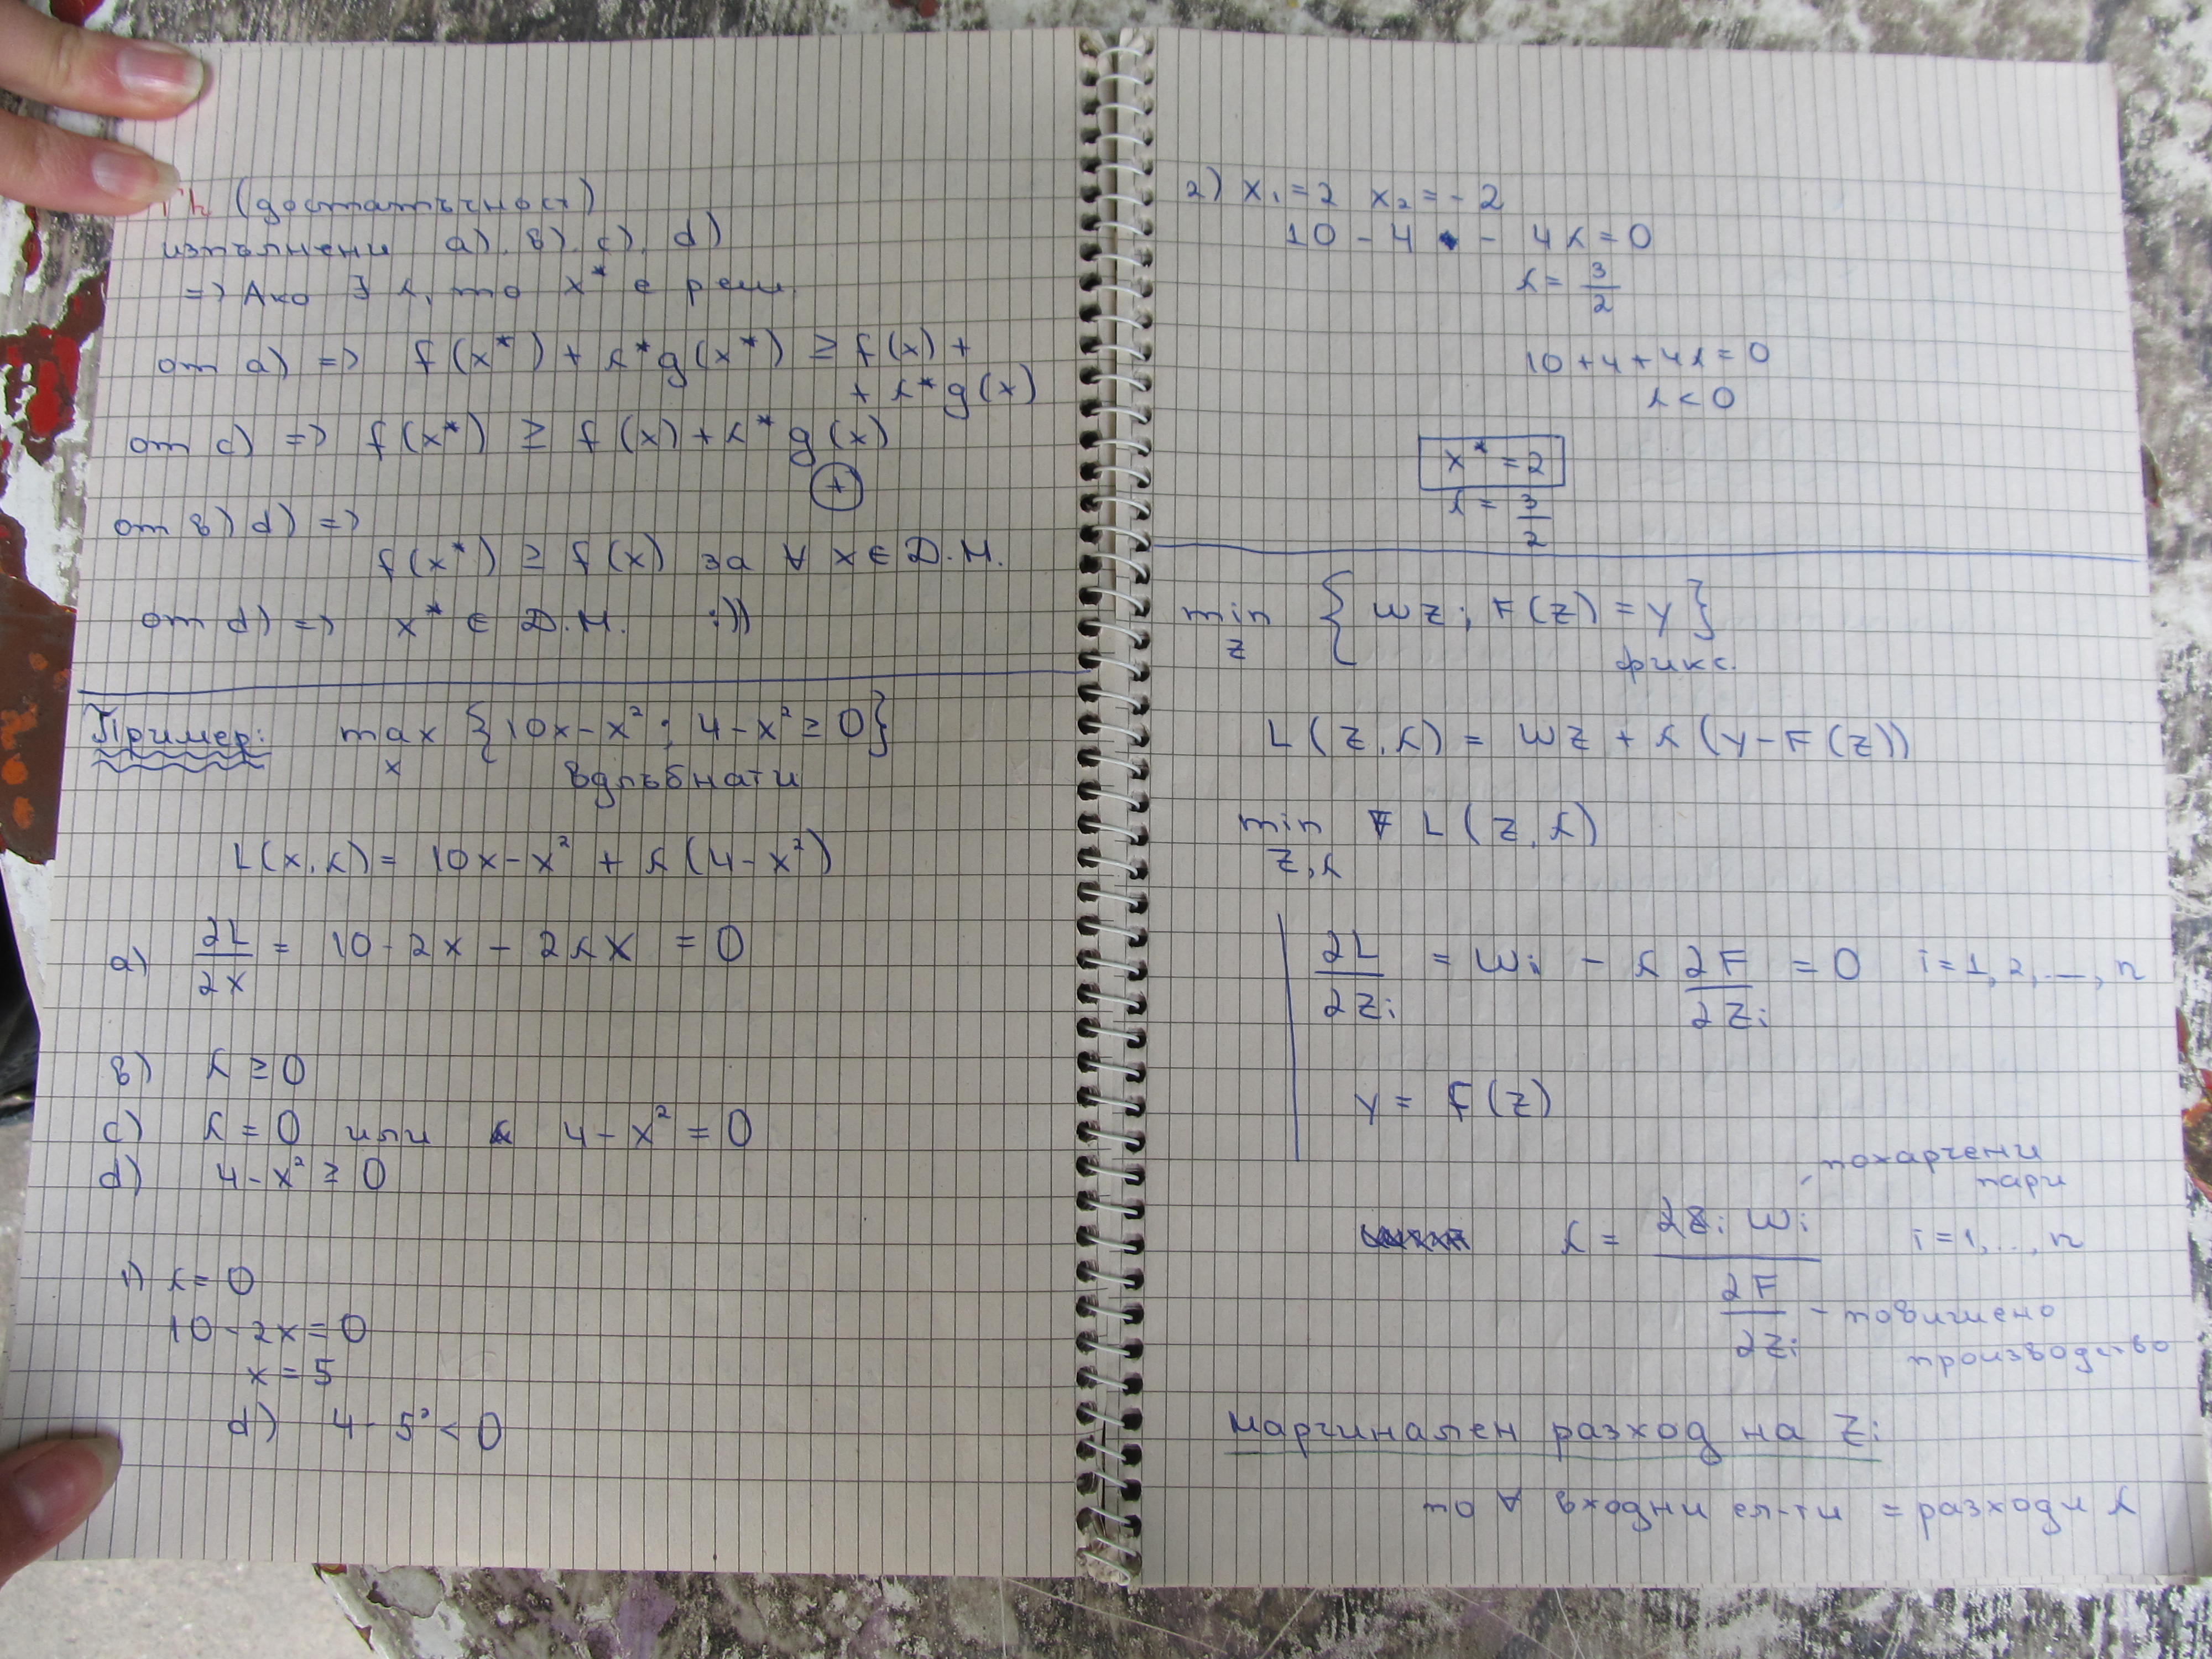 Th (достатъчност)
изпълнени a), b), c), d)
=> Ако ∃ λ, то x* е реш.
от a) => f(x*) + λ*g(x*) ≥ f(x) +
+ λ*g(x)
от c) => f(x*) ≥ f(x) + λ*g(x)
+
от b) d) =>
f(x*) ≥ f(x) за ∀ x ∈ Д.М.
от d) => x* ∈ Д.М. :))
Пример: max {10x-x²; 4-x² ≥ 0}
x вдлъбнати
L(x,λ) = 10x-x² + λ(4-x²)
a) ∂L/∂x = 10-2x - 2λx = 0
b) λ ≥ 0
c) λ = 0 или 4-x² = 0
d) 4-x² ≥ 0
1) λ = 0
10-2x = 0
x = 5
d) 4-5² < 0
2) x₁=2 x₂=-2
10 - 4 - 4λ = 0
λ = 3/2
10+4+4λ = 0
λ < 0
x* = 2
λ = 3/2
min {wz; F(z) = y}
z фикс.
L(z,λ) = wz + λ(y-F(z))
min L(z,λ)
z,λ
∂L/∂zᵢ = wᵢ - λ ∂F/∂zᵢ = 0 i=1,2,...,n
y = F(z)
похарчени
пари
λ = ∂zᵢ wᵢ / ∂F/∂zᵢ i=1,...,n
- повишено
производство
маргинален разход на zᵢ
по ∀ входни ел-ти = разходи λ